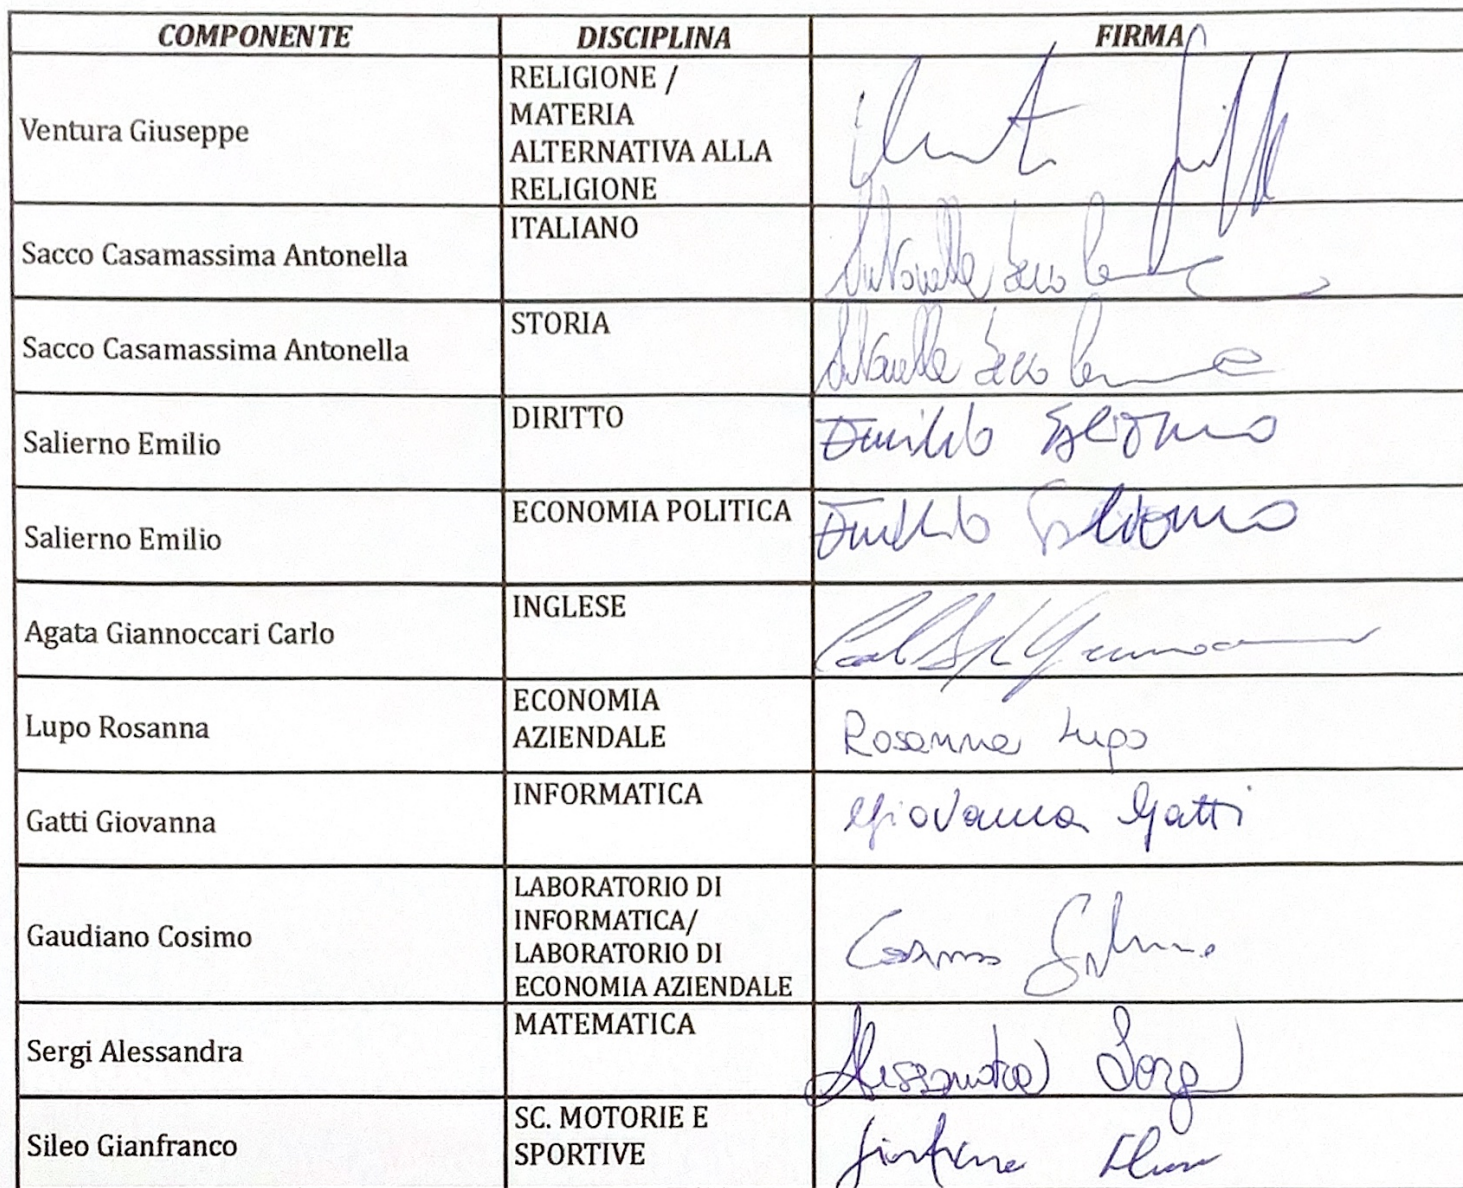 COMPONENTE DISCIPLINA FIRMA
Ventura Giuseppe
RELIGIONE /
MATERIA
ALTERNATIVA ALLA
RELIGIONE
Sacco Casamassima Antonella
ITALIANO
Antonella Sacco
Sacco Casamassima Antonella
STORIA
Antonella Sacco
Salierno Emilio
DIRITTO
Emilio Salierno
Salierno Emilio
ECONOMIA POLITICA
Emilio Salierno
Agata Giannoccari Carlo
INGLESE
Lupo Rosanna
ECONOMIA
AZIENDALE
Rosanna Lupo
Gatti Giovanna
INFORMATICA
Giovanna Gatti
Gaudiano Cosimo
LABORATORIO DI
INFORMATICA/
LABORATORIO DI
ECONOMIA AZIENDALE
Cosimo
Sergi Alessandra
MATEMATICA
Alessandra Sergi
Sileo Gianfranco
SC. MOTORIE E
SPORTIVE